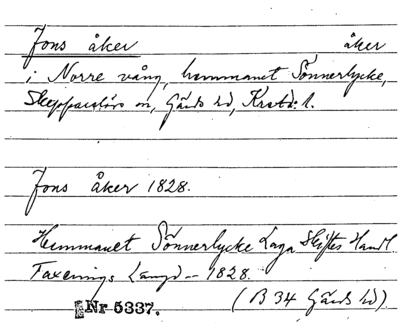 Jons åker åker
i Norre vång, hemmanet Sönnerlycke,
Skepparslövs sn, Gärds hd, Krstd. l.
Jons åker 1828.
Hemmanet Sönnerlycke Laga Skiftes Handl.
Taxerings Längd – 1828.
(B 34 Gärds hd)
Nr 5337.